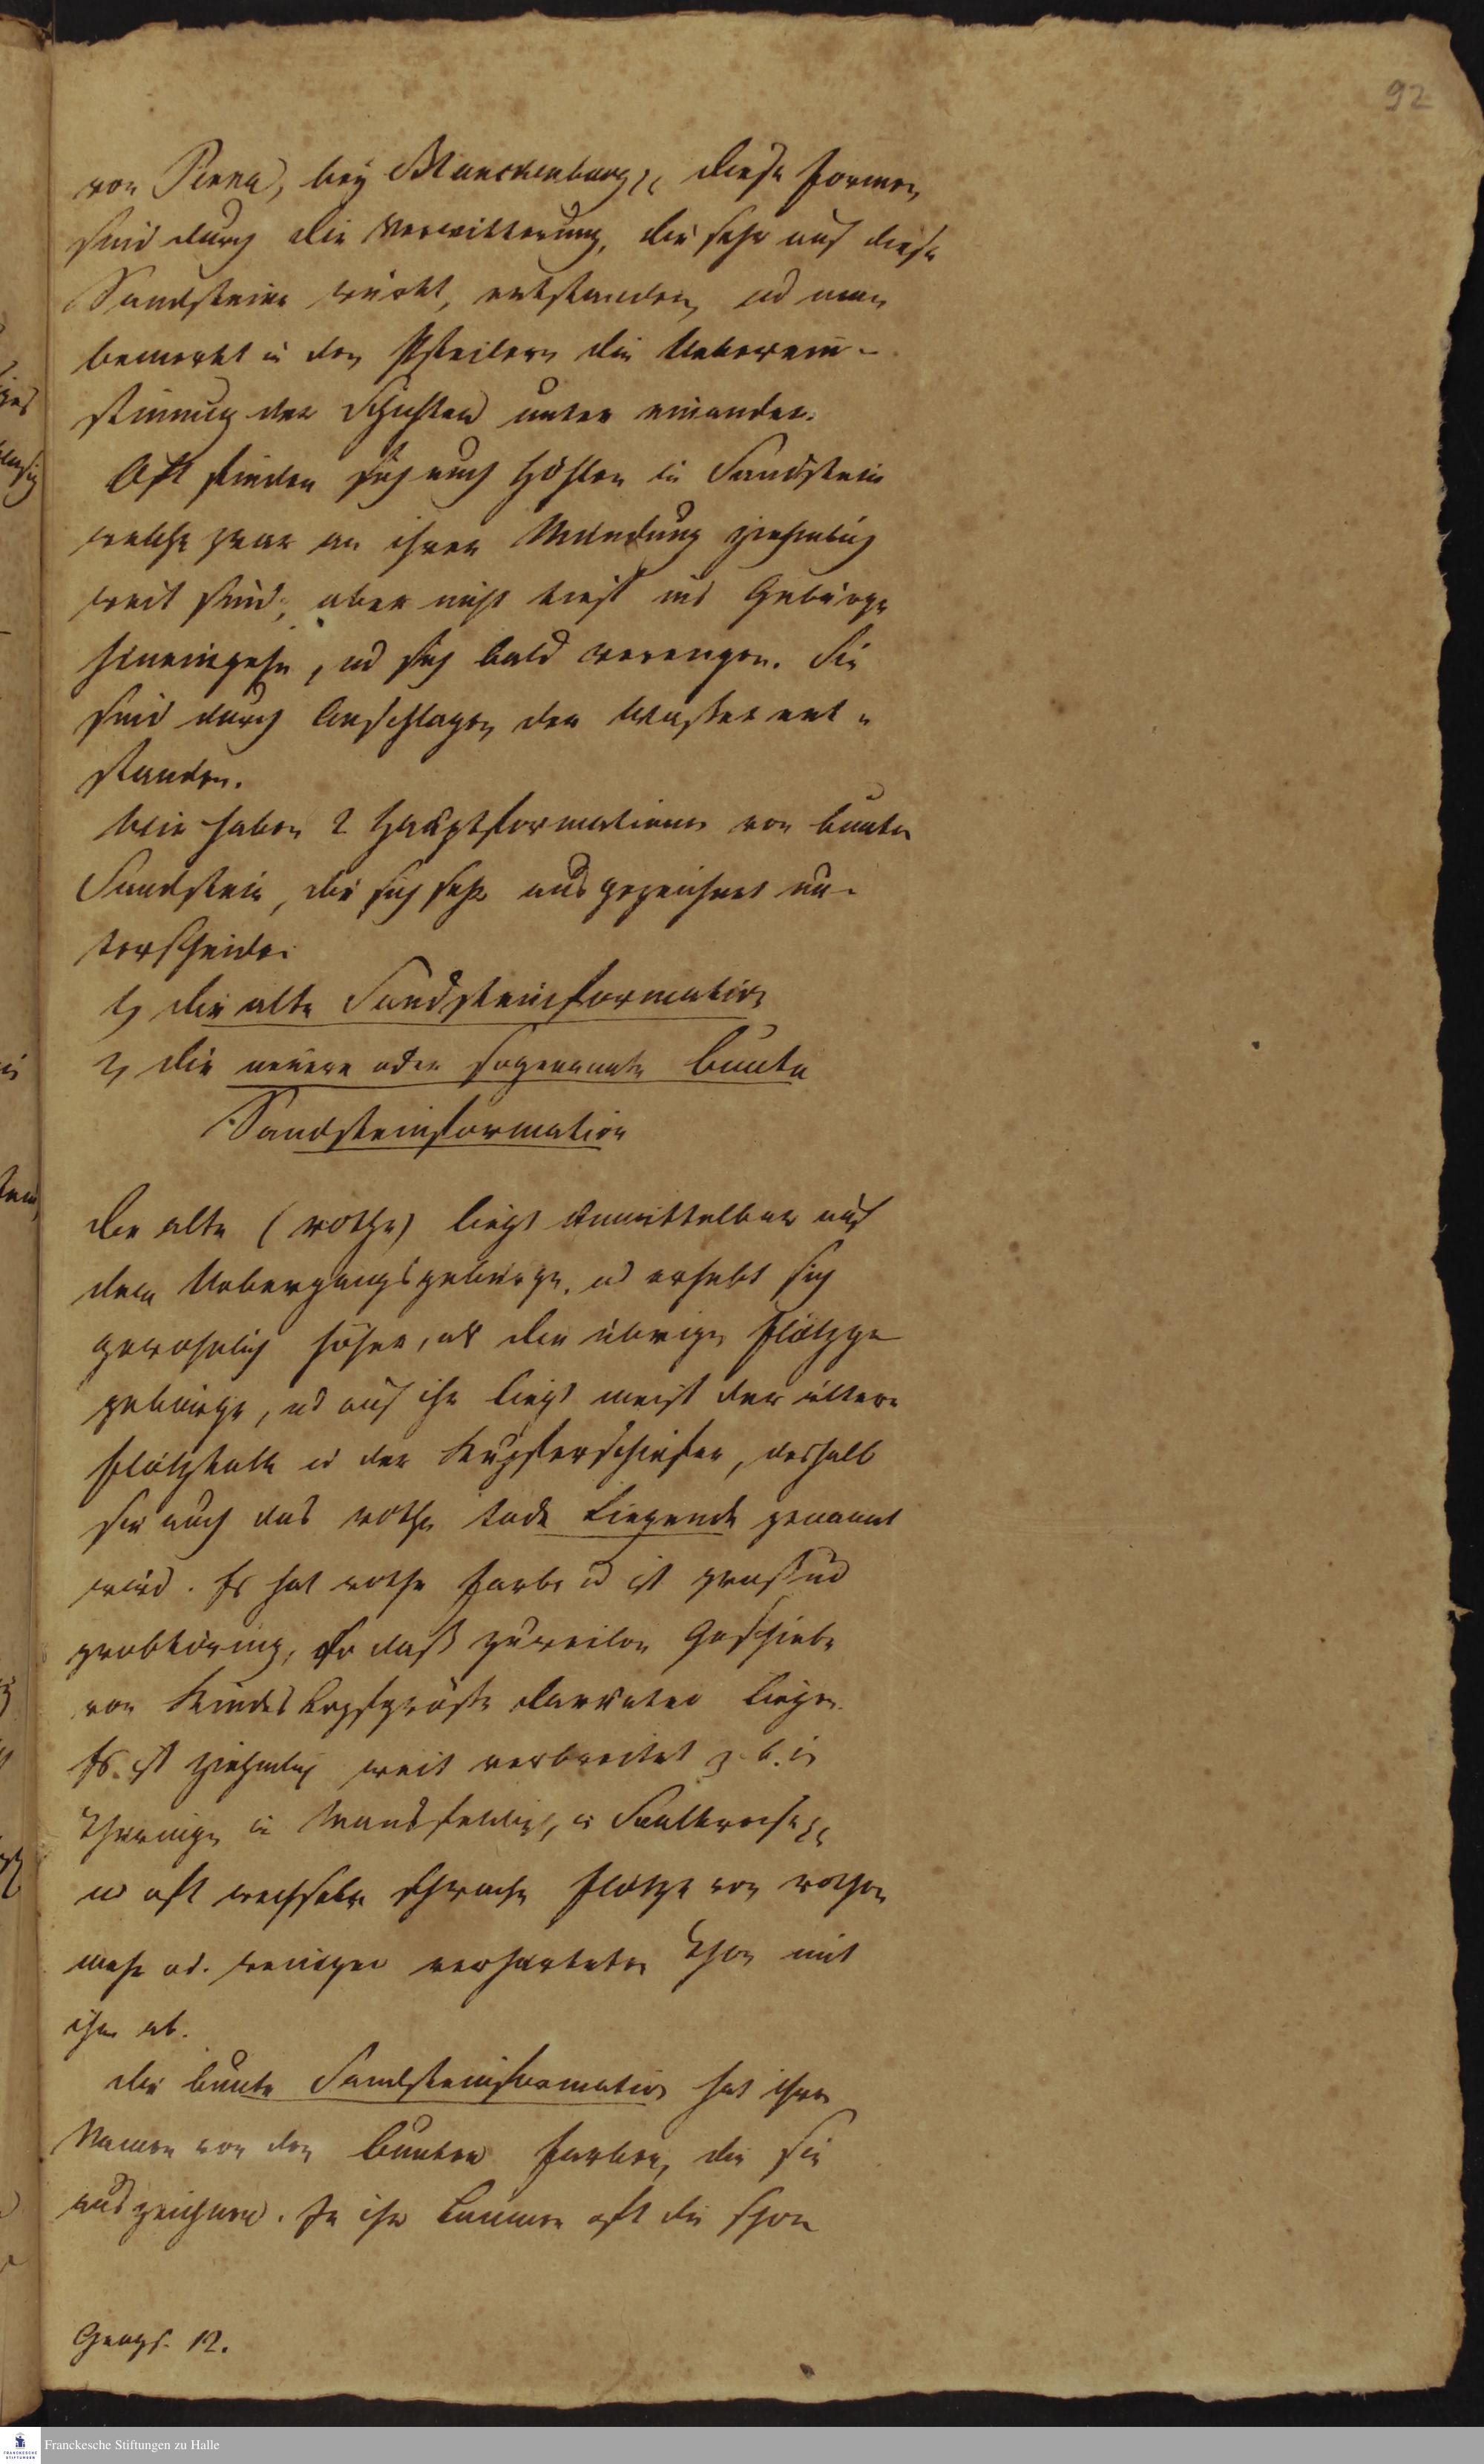 92
von Pirna, bey Blanckenburg pp diese Formen
sind durch die Verwitterung, die sehr auf diese
Sandsteine wirkt, entstanden, ud man
bemerkt in den Pfeilern die Ueberein-
stimmung der Schichten unter einander.
Oft finden sich auch Höhlen in Sandstein
welche zwar an ihrer Mündung ziehmlich
weit sind, aber nicht tief ins Gebirge
hineingehn, ud sich bald verengen. Sie
sind durch Anschlagen der Wasser ent-
standen.
Wir haben 2 Hauptformationen von bunten
Sandstein, die sich sehr ausgezeichnet un-
terscheiden
1, die alte Sandsteinformation
2, die neuere oder sogenannte bunte
Sandsteinformation
Die alte (rothe) liegt unmittelbar auf
dem Uebergangsgebirge, ud erhebt sich
gewöhnlich höher, als die übrigen Flötzge
gebirge, ud auf ihr liegt meist der ältere
Flötzkalk u der Kupferschiefer, deshalb
sie auch das rothe tode Liegende genannt
wird. Es hat rothe Farbe u ist groß und
grobkörnig, so daß zuweilen Geschiebe
von Kindeskopfgröße darunter liegen.
Es ist ziehmlich weit verbreitet z. b. in
Thüringen in Mansfeldischen, in Saalkreise pp
u oft wechseln schwache Flötze von rothen
mehr od. weniger verhärteten Thon mit
ihm ab.
Die bunte Sandsteinformation hat ihren
Namen von den bunten Farben, die sie
auszeichnen. In ihr kommen oft die schon
Geogn. 12.
Franckesche Stiftungen zu Halle